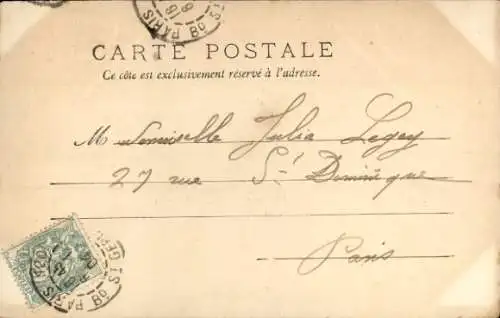 PARIS
CARTE POSTALE
Ce côté est exclusivement réservé à l'adresse.
Mademoiselle Julia Legay
27 rue St Dominique
Paris
PARIS